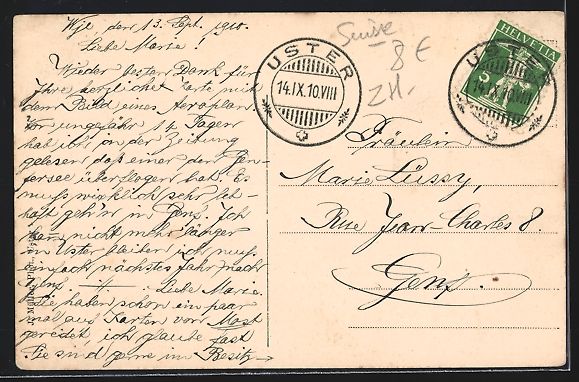 den 13. Sept. 1910.
Liebe Marie!
Wieder besten Dank für
Ihre herzliche Karte mit
dem Bild eines Aeroplan
Vor ungefähr 14 Tagen
hab ich in der Zeitung
gelesen, daß einer den Gen-
fersee überflogen hat. Es
muss wirklich sehr leb-
haft geh'n in Genf. Ich
kann nicht mehr länger
in Uster bleiben ich muss
einfach nächstes Jahr nach
Genf. Liebe Marie
Sie haben schon ein paar
mal aus Karten von Most
geredet, ich glaube fast
Sie sind gern im Besitz
USTER
14.IX.10.VIII
Suisse
8 €
ZH.
HELVETIA
5
USTER
14.IX.10.VIII
Fräulein
Marie Lüssy,
Rue Jean-Charles 8.
Genf.